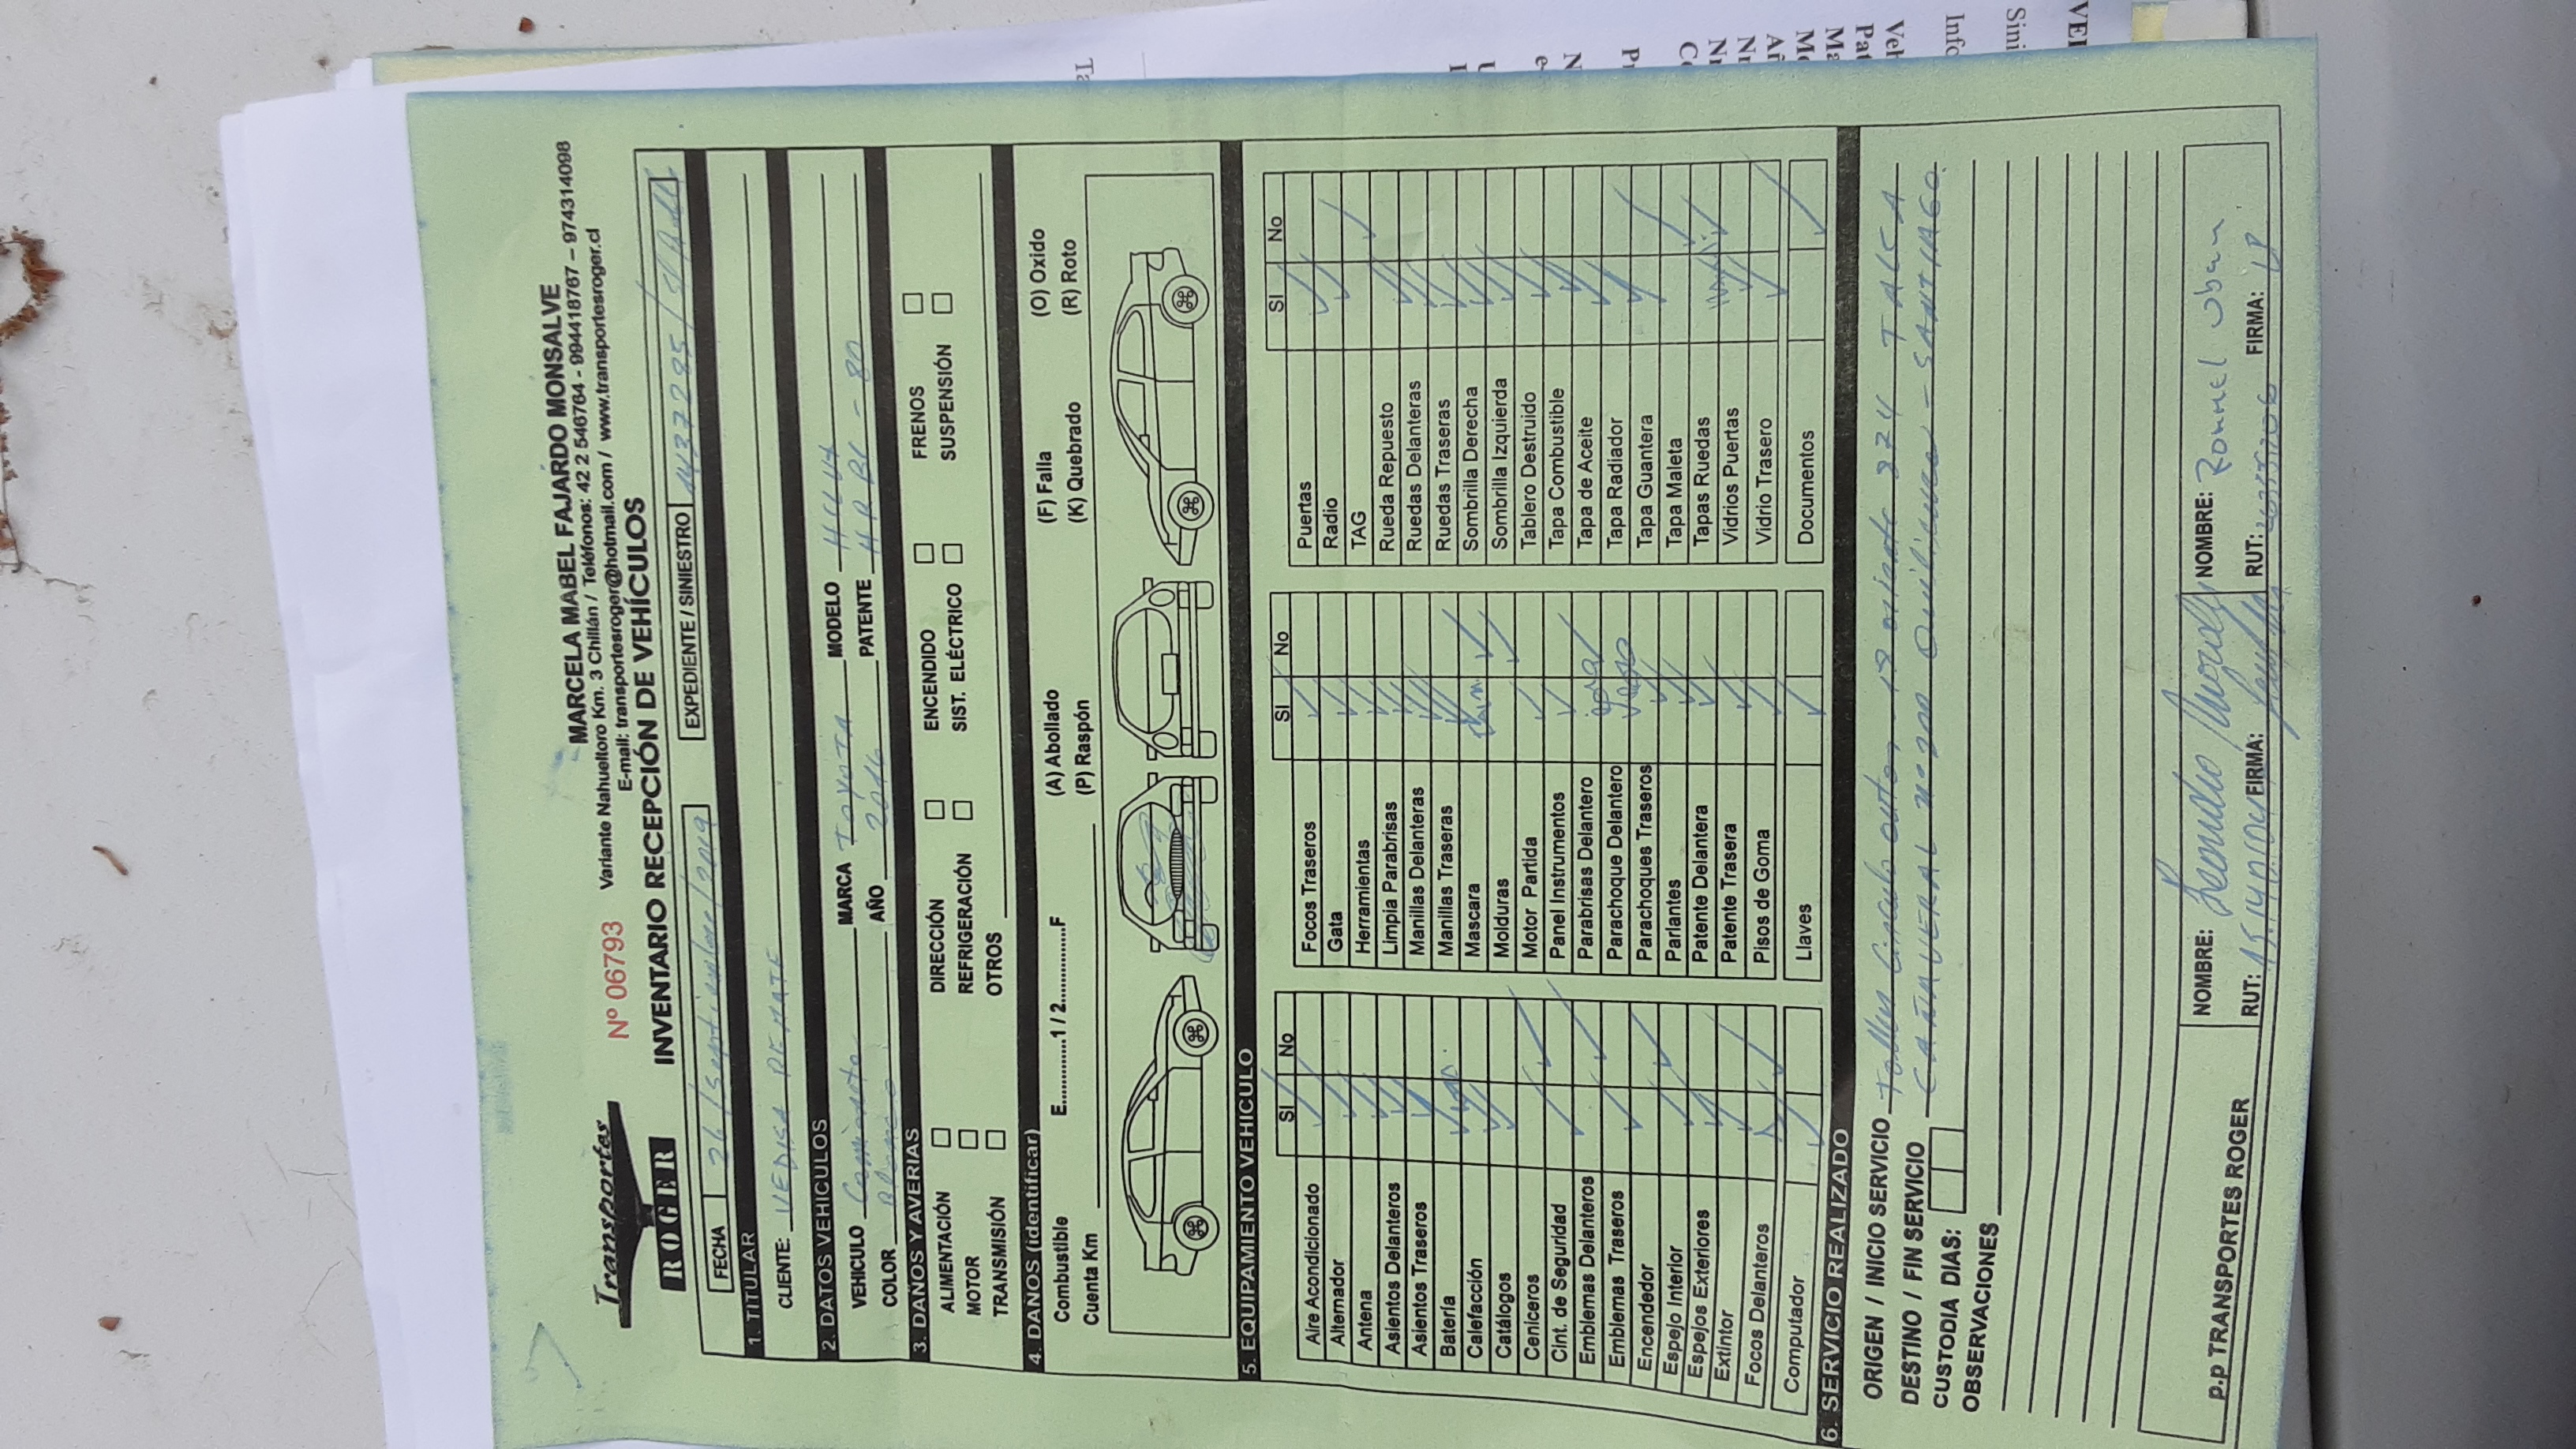 Transportes
ROGER
MARCELA MABEL FAJARDO MONSALVE
Nº 06793 Variante Nahueltoro Km. 3 Chillán / Teléfonos: 42 2 546764 - 994418767 – 974314098
E-mail: transportesroger@hotmail.com / www.transportesroger.cl
INVENTARIO RECEPCIÓN DE VEHÍCULOS
FECHA 26 / Septiembre / 2019 EXPEDIENTE / SINIESTRO
1. TITULAR
CLIENTE: VEDISA REMATE
2. DATOS VEHICULOS
VEHICULO Camioneta MARCA TOYOTA MODELO HILUX
COLOR Blanco AÑO 2016 PATENTE HRBC - 80
3. DANOS Y AVERIAS
ALIMENTACIÓN DIRECCIÓN ENCENDIDO FRENOS
MOTOR REFRIGERACIÓN SIST. ELÉCTRICO SUSPENSIÓN
TRANSMISIÓN OTROS
4. DANOS (identificar)
Combustible E.............1 / 2.............F (A) Abollado (F) Falla (O) Oxido
Cuenta Km (P) Raspón (K) Quebrado (R) Roto
5. EQUIPAMIENTO VEHICULO
SI No SI No SI No
Aire Acondicionado Focos Traseros Puertas
Alternador Gata Radio
Antena Herramientas TAG
Asientos Delanteros Limpia Parabrisas Rueda Repuesto
Asientos Traseros Manillas Delanteras Ruedas Delanteras
Batería Manillas Traseras Ruedas Traseras
Calefacción Mascara Sombrilla Derecha
Catálogos Molduras Sombrilla Izquierda
Ceniceros Motor Partida Tablero Destruido
Cint. de Seguridad Panel Instrumentos Tapa Combustible
Emblemas Delanteros Parabrisas Delantero Tapa de Aceite
Emblemas Traseros Parachoque Delantero Tapa Radiador
Encendedor Parachoques Traseros Tapa Guantera
Espejo Interior Parlantes Tapa Maleta
Espejos Exteriores Patente Delantera Tapas Ruedas
Extintor Patente Trasera Vidrios Puertas
Focos Delanteros Pisos de Goma Vidrio Trasero
Computador Llaves Documentos
6. SERVICIO REALIZADO
ORIGEN / INICIO SERVICIO Taller Circulo autos 19 oriente 274 TALCA
DESTINO / FIN SERVICIO CAÑAVERAL Nº 200 Quilicura - SANTIAGO.
CUSTODIA DIAS:
OBSERVACIONES
p.p TRANSPORTES ROGER
NOMBRE: NOMBRE: Rommel
RUT: FIRMA: RUT: FIRMA: